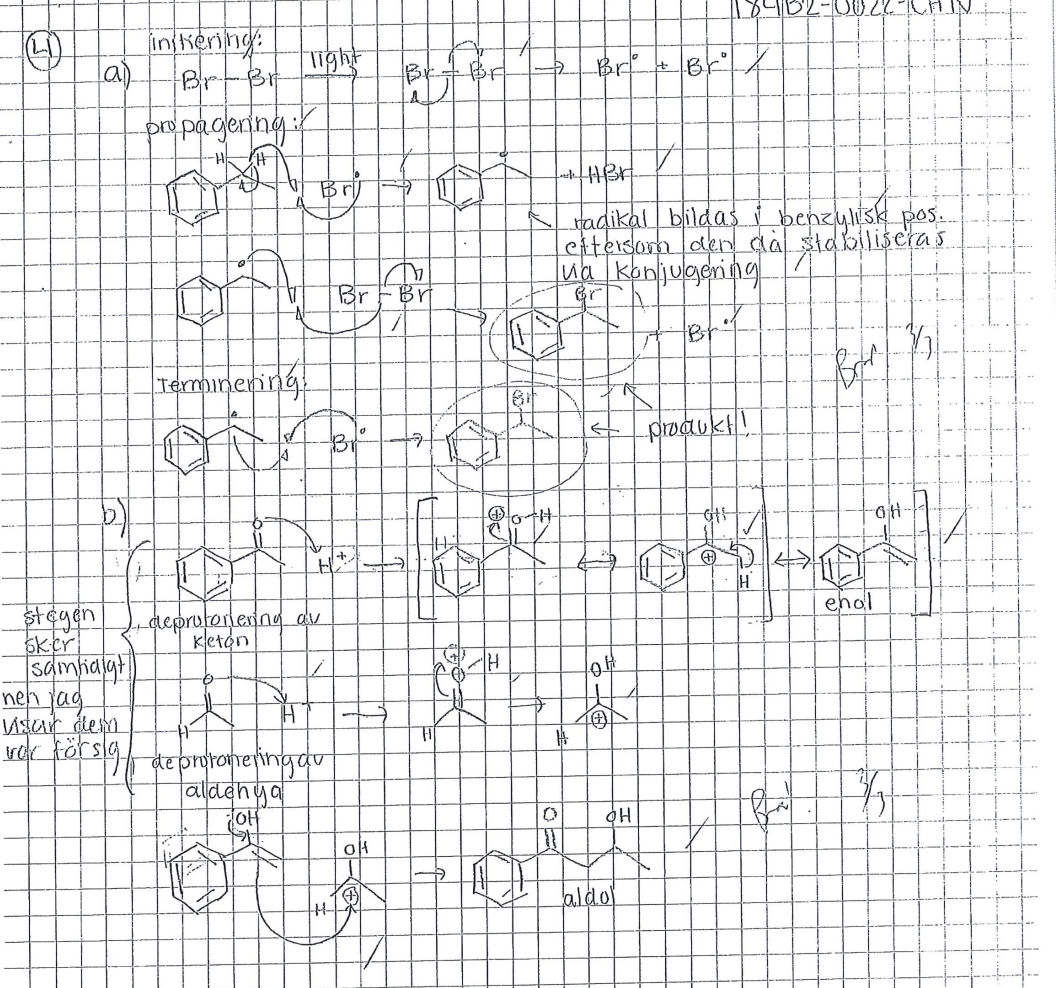 184B2-0022-CHN
4
initiering:
a) Br-Br light Br-Br → Br• + Br•
propagering:
H H
Br• → + HBr
radikal bildas i benzylisk pos.
eftersom den då stabiliseras
via konjugering
Br-Br
Br
+ Br•
Bra! 3/3
Terminering:
Br• → Br
produkt!
b)
O H+ → H ⊕ O-H ↔ OH ⊕ H ↔ OH
enol
deprotonering av
keton
stegen
sker
samtidigt
men jag
visar dem
var för sig
O H H+ → ⊕ O-H H → OH ⊕ H
deprotonering av
aldehyd
Bra! 3/3
OH OH H ⊕ → O OH
aldol